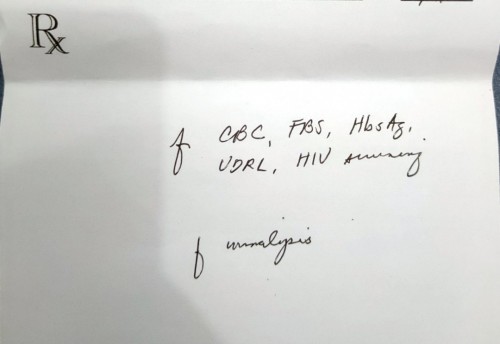 Rx
f CBC, FBS, HbsAg,
VDRL, HIV screening
f urinalysis